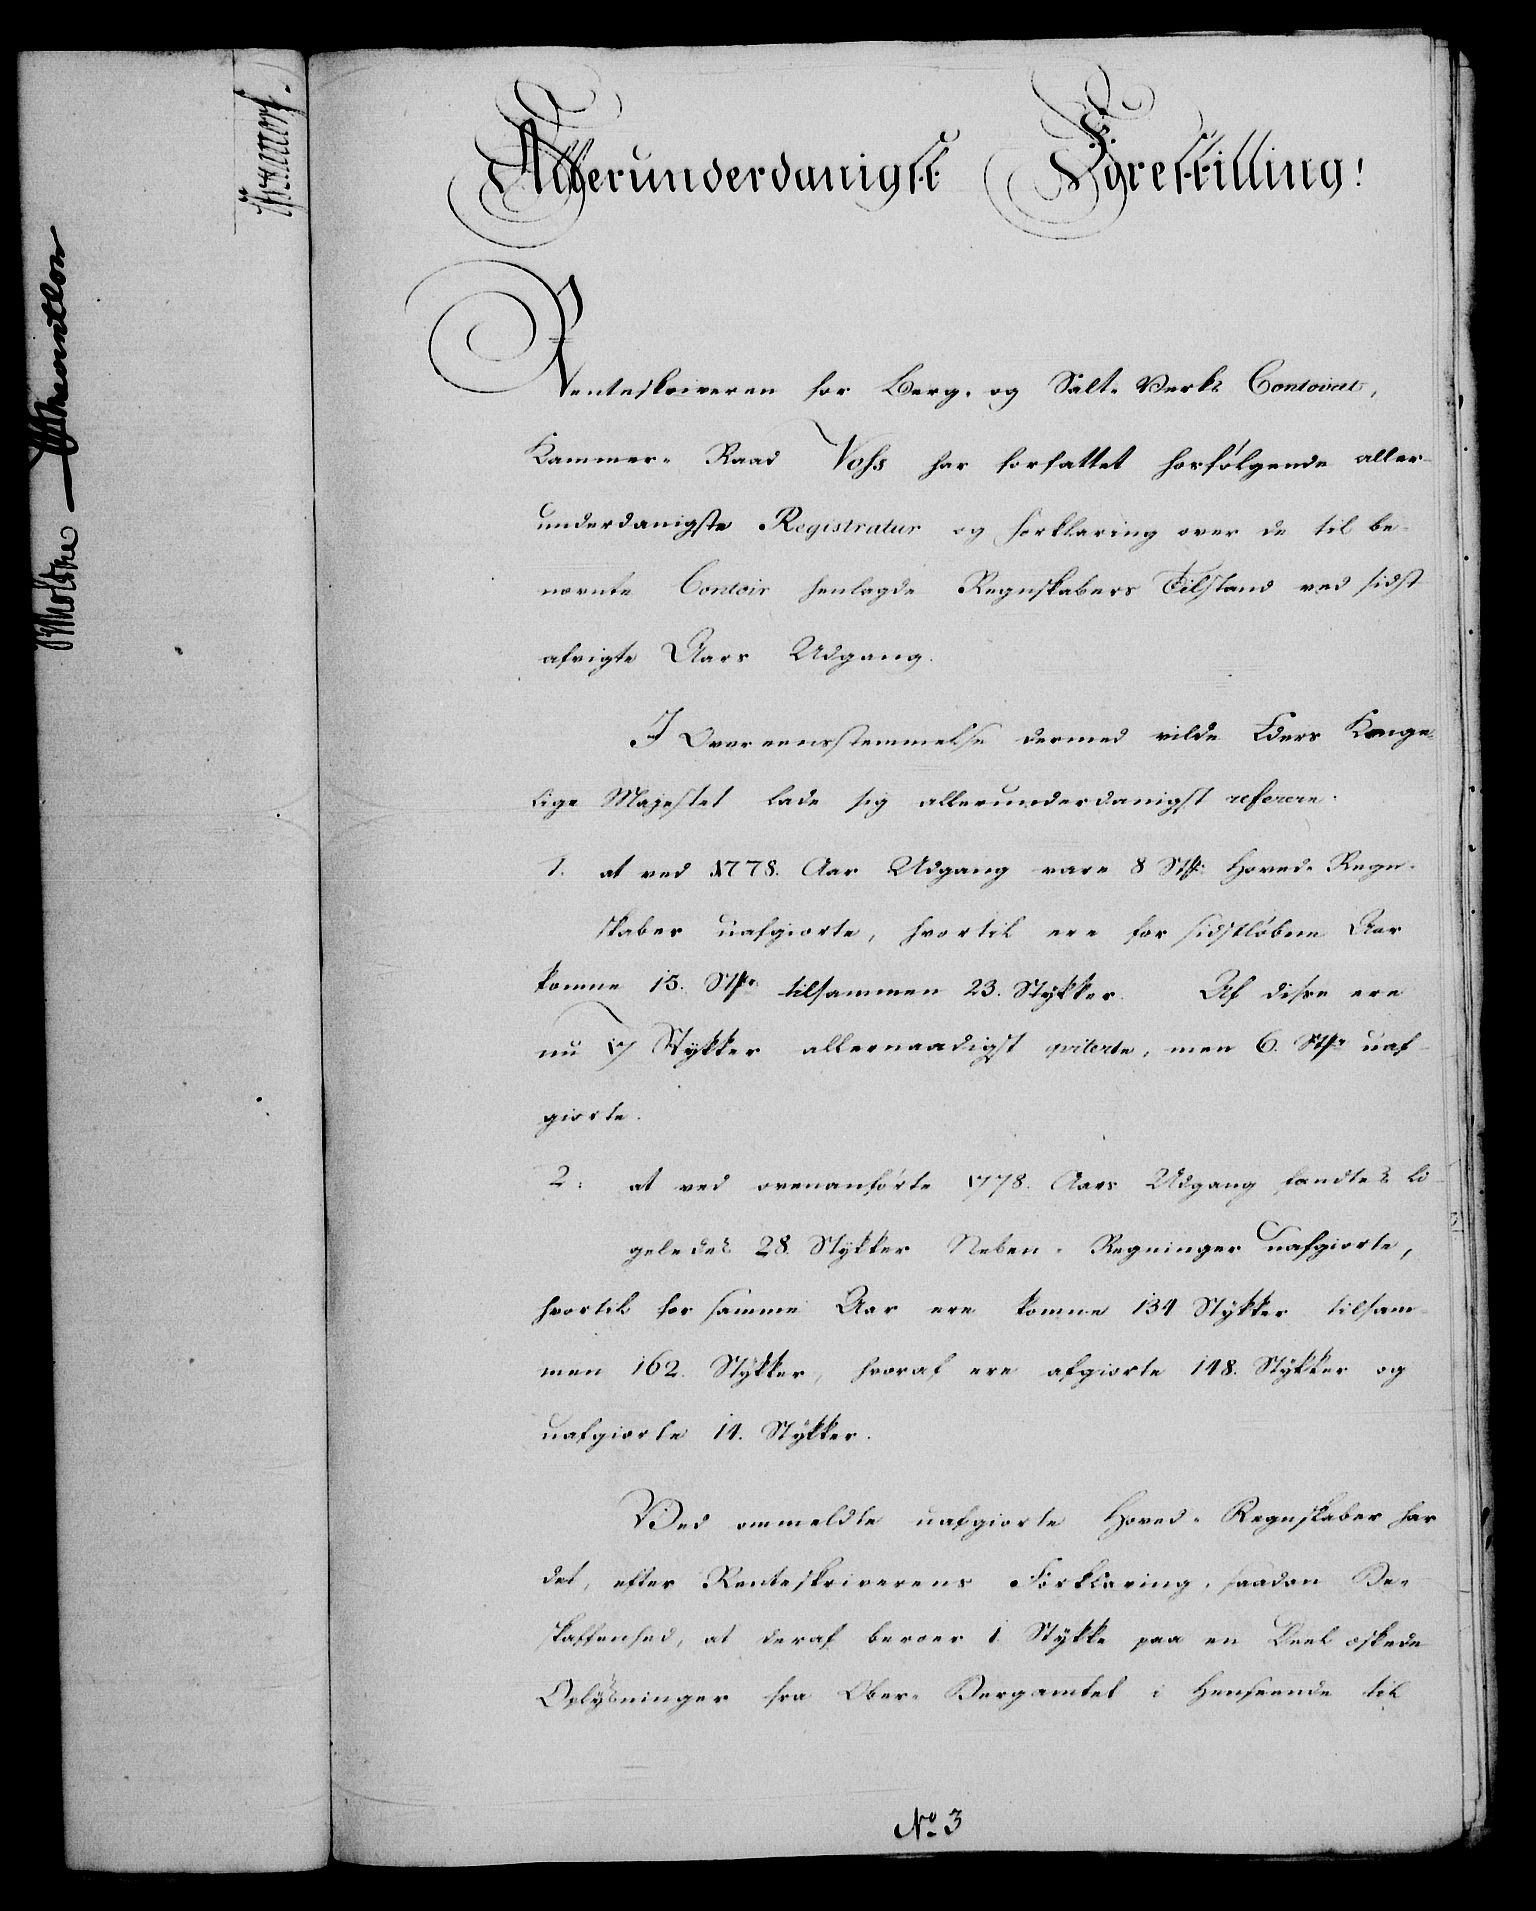 Allerunderdanigst Forestilling!
Renteskriveren for Berg- og Salt-Verks Contoiret,
Kammer-Raad Voss har forfattet hosfølgende aller-
underdanigste Registratur og Forklaring over de til be-
nævnte Contoir henlagde Regnskabers Tilstand ved sidst
afvigte Aars Udgang.
I Overeensstemmelse dermed vilde Eders Konge-
lige Majestet lade sig allerunderdanigst referere.
1. at ved 1778. Aar Udgang vare 8 Stkr. Hoved-Regn-
skaber uafgiorte, hvortil ere for sidstløbne Aar
komne 15. Stkr. tilsammen 23. Stykker. Af disse ere
nu 17 Stykker allernaadigst qviterte, men 6. Stkr. uaf-
giorte.
2. at ved ovenanførte 1778. Aars Udgang fandtes li-
geledes 28. Stykker Neben-Regninger uafgiorte,
hvortil for samme Aar ere komne 134 Stykker tilsam-
men 162. Stykker, hvoraf ere afgiorte 148. Stykker og
uafgiorte 14. Stykker.
Ved ommeldte uafgiorte Hoved-Regnskaber har
det, efter Renteskriverens Forklaring, saadan Be-
skaffenhed, at deraf beroer 1 Stykke paa en Deel æskede
Oplysninger fra Ober-Bergamtet i Henseende til
No. 3